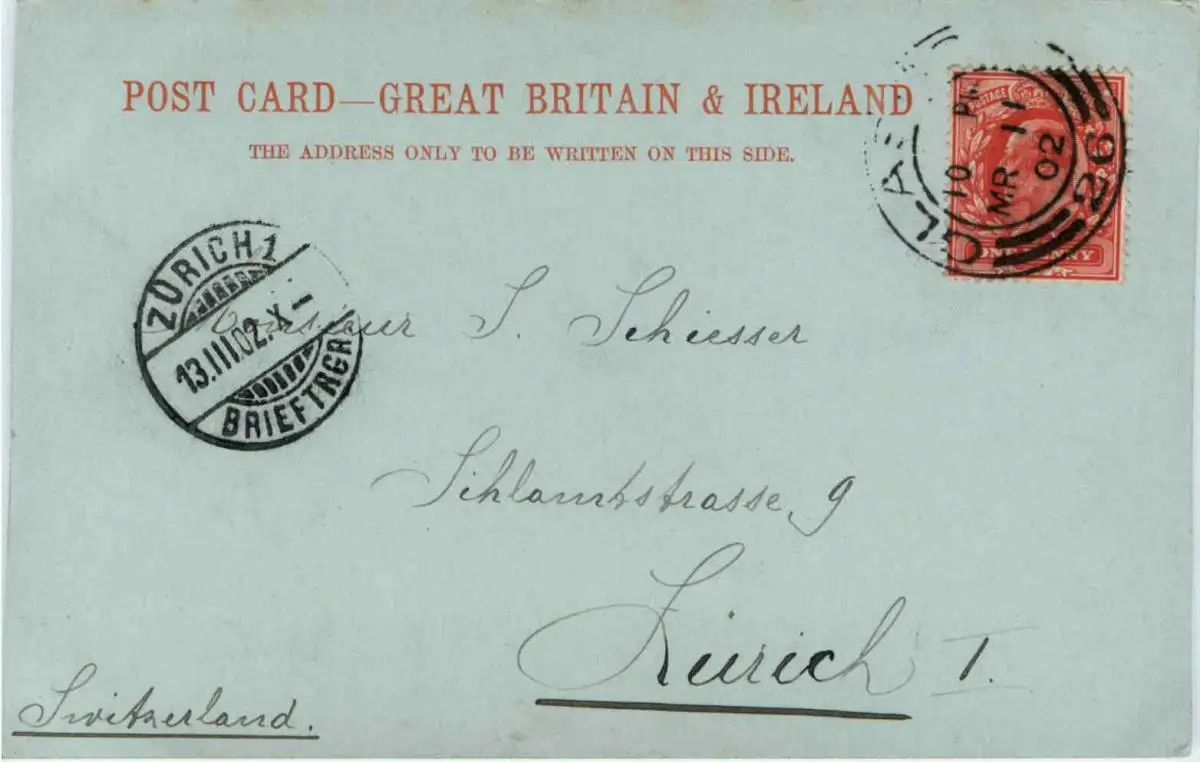 POST CARD—GREAT BRITAIN & IRELAND
THE ADDRESS ONLY TO BE WRITTEN ON THIS SIDE.
POSTAGE
ONE PENNY
10 PM
MR 11
02
26
ZÜRICH 1
13.III.02.-X-
BRIEFTRGR.
Monsieur S. Schiesser
Sihlamtstrasse 9
Zürich I.
Switzerland.